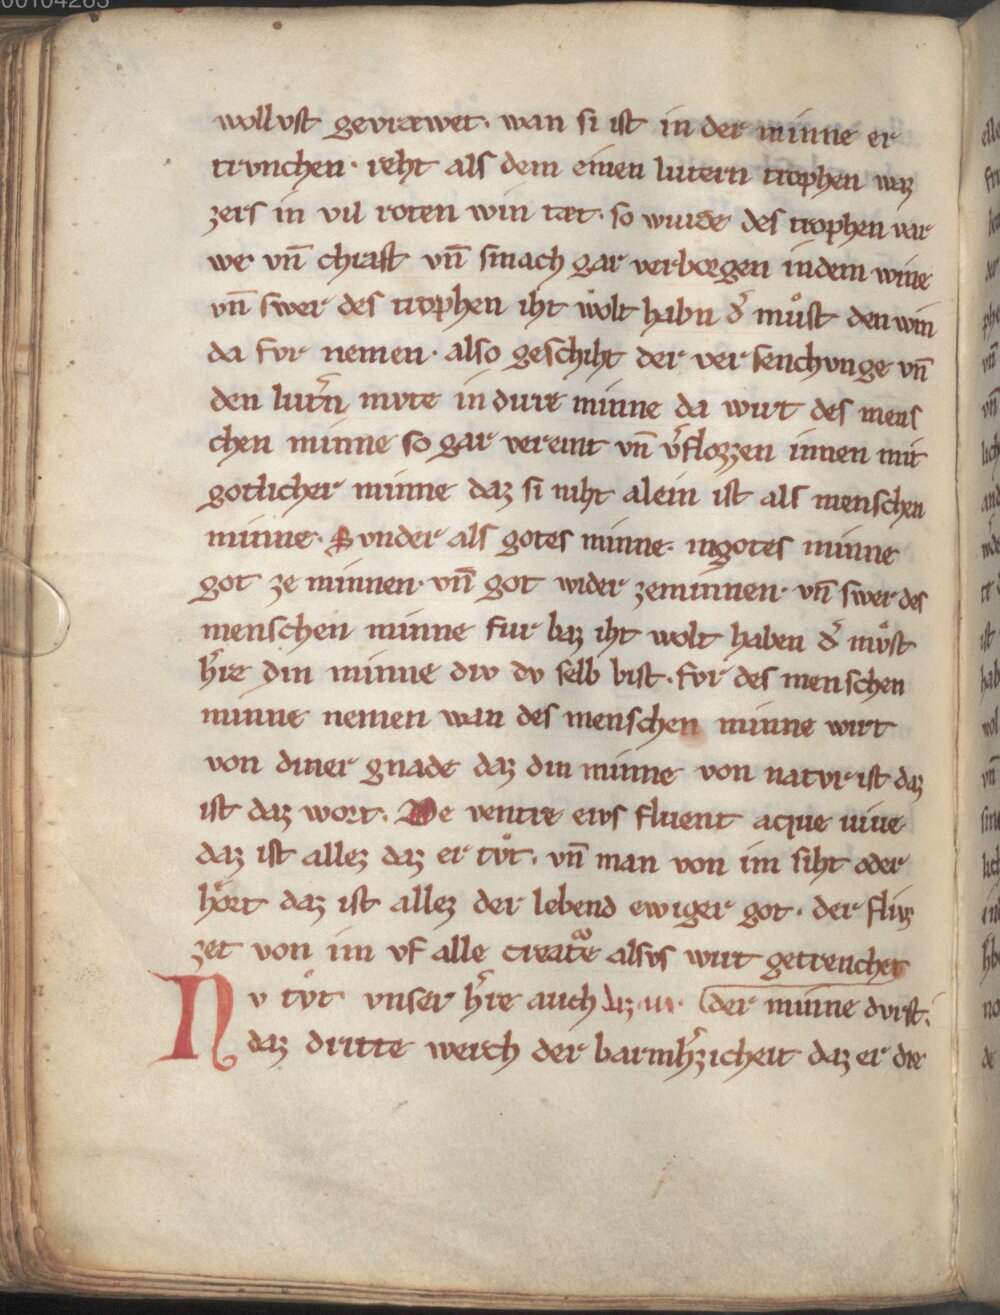 00104263
wollvst gevrævwet. wan si ist in der minne er
trvnchen. reht als dem einen lutern trophen waz
zers in vil roten win tæt. so wurde des trophen var
we vn̄ chraft vn̄ smach gar verborgen indem wine
vn̄ swer des trophen iht wolt habn d͛ mu̍st den win
da fvr nemen. also geschiht der ver senchvnge vn̄
den lut͛n mvte in dure minne da wirt des mens
chen minne so gar vereint vn̄ v͛flozzen innen mit
gotlicher minne daz si niht alein ist als menschen
minne. Svnder als gotes minne. ingotes minne
got ze minnen. vn̄ got wider zeminnen. vn̄ swer des
menschen minne fur baz iht wolt haben d͛ mvͦst
h͛re din minne div dv selb bist. fvr des menschen
minne nemen wan des menschen minne wirt
von diner gnade daz din minne von natvr ist daz
ist daz wort. De ventre eivs flvent aqve uiue
daz ist allez daz er tvͦt. vn̄ man von im siht oder
hört daz ist allez der lebend ewiger got. der fliuz
zet von im vf alle creat͛e alsvs wirt getrenchet
Nv tvͦt vnser h͛re auch daz .iii. der minne dvrst.
daz dritte werch der barmh͛zicheit daz er die